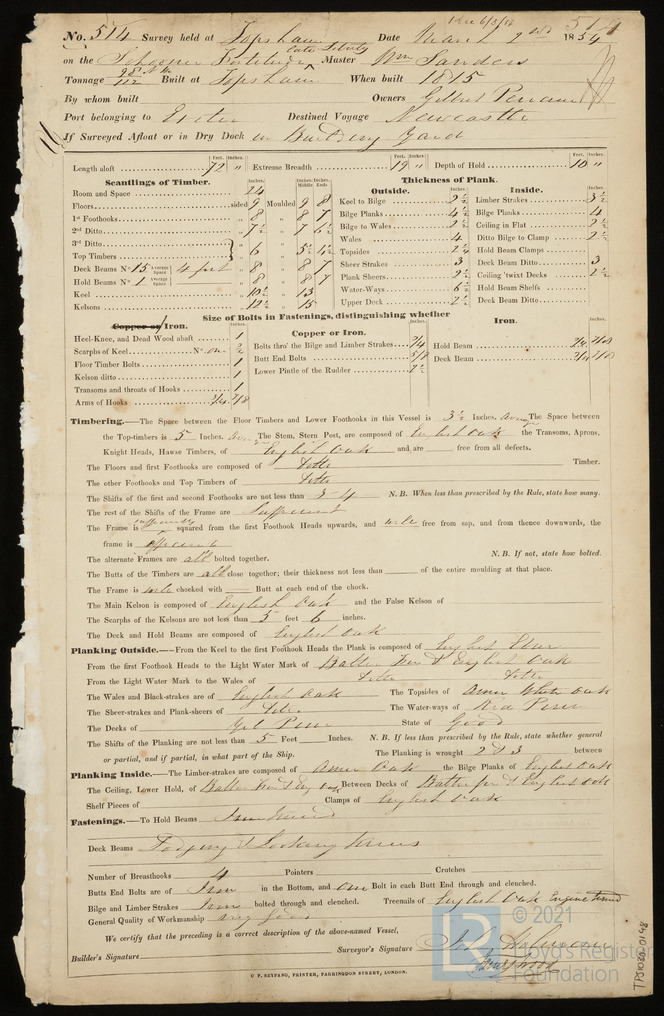 No. 514 Survey held at Topsham Date March 2nd 1854
on the Schooner Fortitude Master Wm Sanders
late Liberty
Tonnage 98 112 Built at Topsham When built 1815
By whom built Owners Gilbert
Port belonging to Exeter Destined Voyage Newcastle
If Surveyed Afloat or in Dry Dock in Building Yard
Feet. Inches. Feet. Inches. Feet. Inches.
Length aloft 72 " Extreme Breadth 19 " Depth of Hold 10 "
Scantlings of Timber. Inches. Inches. Middle Inches. Ends
Room and Space 24
Floors sided 9 Moulded 9 8
1st Foothooks " 8 " 8 7
2nd Ditto " 7½ " 7 6½
3rd Ditto
Top Timbers " 6 " 5½ 4½
Deck Beams No 15 Average Space 4 feet " 8 " 8 7
Hold Beams No 1 Average Space " 8 " 8 7
Keel " 10½ " 13
Kelsons " 12½ " 15
Thickness of Plank.
Outside. Inches.
Keel to Bilge 2½
Bilge Planks 4½
Bilge to Wales 2½
Wales 4
Topsides 2½
Sheer Strakes 3
Plank Sheers 2½
Water-Ways 6½
Upper Deck 2½
Inside. Inches.
Limber Strakes 3½
Bilge Planks 4
Ceiling in Flat 2½
Ditto Bilge to Clamp 2½
Hold Beam Clamps
Deck Beam Ditto 3
Ceiling 'twixt Decks 2½
Hold Beam Shelfs
Deck Beam Ditto
Size of Bolts in Fastenings, distinguishing whether
Copper or Iron. Inches.
Heel-Knee, and Dead Wood abaft 1
Scarphs of Keel No. one ¾
Floor Timber Bolts 1
Kelson ditto 1
Transoms and throats of Hooks 1
Arms of Hooks 3/4 7/8
Copper or Iron. Inches.
Bolts thro' the Bilge and Limber Strakes 3/4
Butt End Bolts 5/8
Lower Pintle of the Rudder 2½
Iron. Inches.
Hold Beam 3/4 7/8
Deck Beam 3/4 7/8
Timbering.—The Space between the Floor Timbers and Lower Foothooks in this Vessel is 3½ Inches. The Space between
the Top-timbers is 5 Inches. The Stem, Stern Post, are composed of English Oak the Transoms, Aprons,
Knight Heads, Hawse Timbers, of English Oak and, are free from all defects.
The Floors and first Foothooks are composed of Ditto Timber.
The other Foothooks and Top Timbers of Ditto
The Shifts of the first and second Foothooks are not less than 3 4 N. B. When less than prescribed by the Rule, state how many.
The rest of the Shifts of the Frame are Sufficient
The Frame is squared from the first Foothook Heads upwards, and well free from sap, and from thence downwards, the
frame is
The alternate Frames are all bolted together. N. B. If not, state how bolted.
The Butts of the Timbers are all close together; their thickness not less than of the entire moulding at that place.
The Frame is well chocked with Butt at each end of the chock.
The Main Kelson is composed of English Oak and the False Kelson of
The Scarphs of the Kelsons are not less than 5 feet 6 inches.
The Deck and Hold Beams are composed of English Oak
Planking Outside.—From the Keel to the first Foothook Heads the Plank is composed of English Elm
From the first Foothook Heads to the Light Water Mark of Baltic Fir & English Oak
From the Light Water Mark to the Wales of Ditto Ditto
The Wales and Black-strakes are of English Oak The Topsides of Amer White Oak
The Sheer-strakes and Plank-sheers of Ditto The Water-ways of Red Pine
The Decks of Yel Pine State of Good
The Shifts of the Planking are not less than 5 Feet Inches. N. B. If less than prescribed by the Rule, state whether general
or partial, and if partial, in what part of the Ship. The Planking is wrought 2 & 3 between
Planking Inside.—The Limber-strakes are composed of Amer Oak the Bilge Planks of English Oak
The Ceiling, Lower Hold, of Baltic Fir & Eng Oak Between Decks of Baltic fir & English oak
Shelf Pieces of Clamps of English Oak
Fastenings.—To Hold Beams Iron Knees
Deck Beams Lodging & Hooking Knees
Number of Breasthooks 4 Pointers Crutches
Butts End Bolts are of Iron in the Bottom, and one Bolt in each Butt End through and clenched.
Bilge and Limber Strakes Iron bolted through and clenched. Treenails of English Oak Engine turned
General Quality of Workmanship very good
We certify that the preceding is a correct description of the above-named Vessel,
Builder's Signature Surveyor's Signature
C. F. SEYFANG, PRINTER, FARRINGDON STREET, LONDON.
© 2021
Lloyd's Register
Foundation